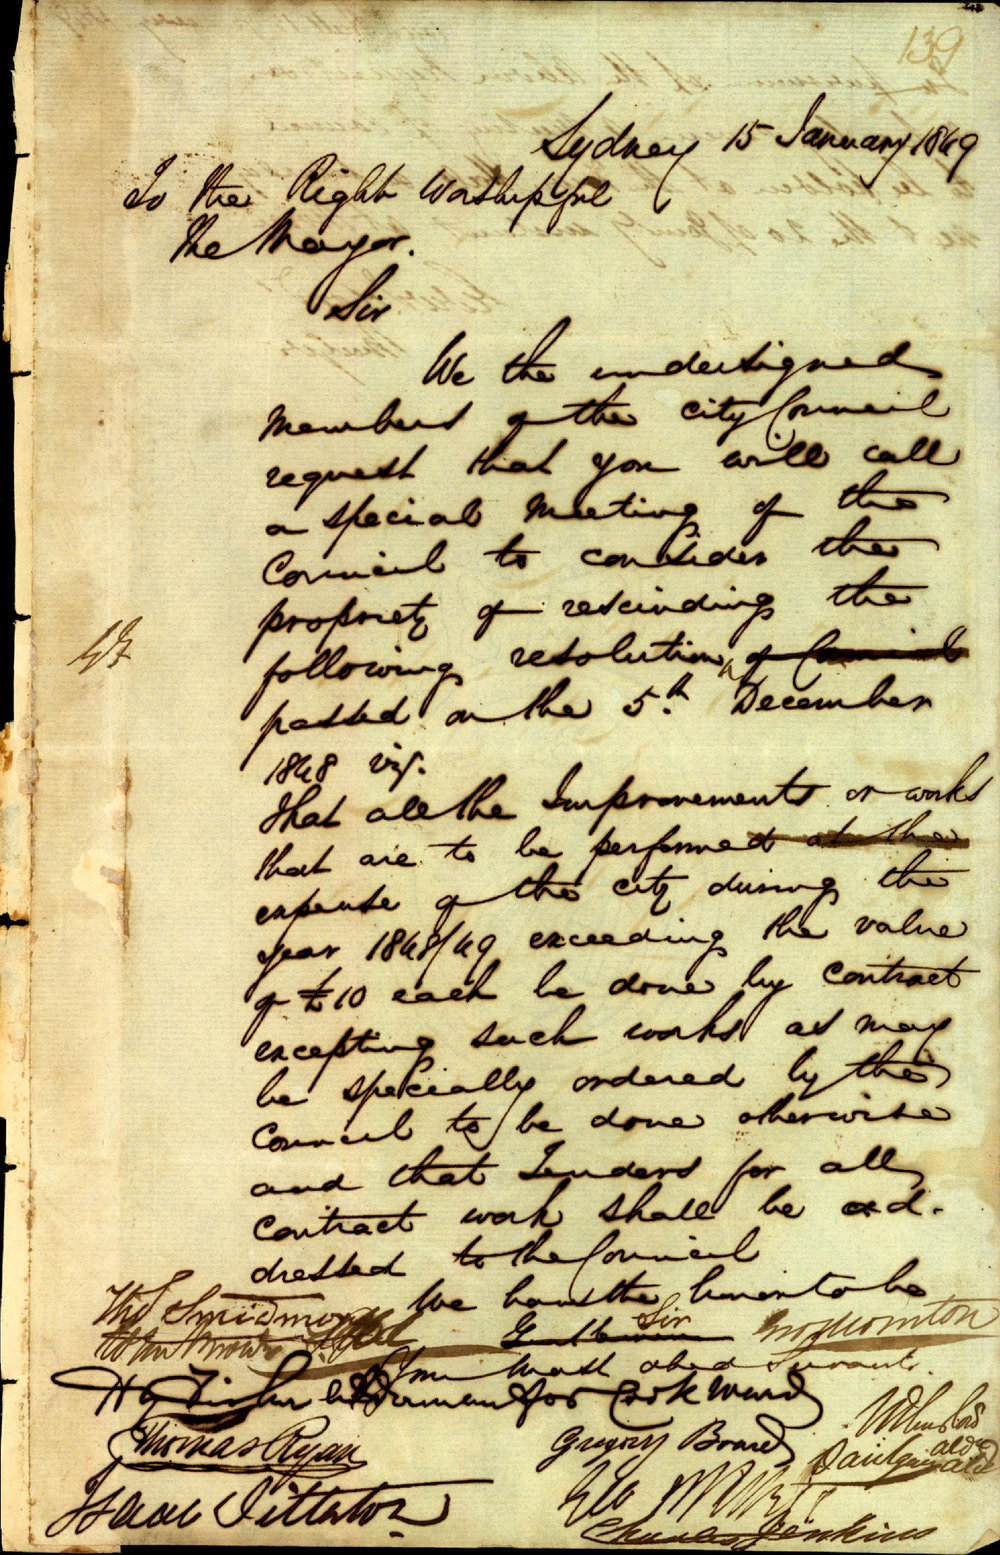 139
Sydney 15 January 1849
To the Right Worshipful
The Mayor.
Sir
We the undersigned
members of the City Council
request that you will call
a special Meeting of the
Council to consider the
propriety of rescinding the
following resolution, of Council
passed on the 5th December
1848 viz.
That all the Improvements or works
that are to be performed at the
expense of the city during the
year 1848/49 exceeding the value
of £10 each be done by contract
excepting such works as may
be specially ordered by the
Council to be done otherwise
and that Tenders for all
contract work shall be ad-
dressed to the Council
We have the honor to be
Sir
Gentlemen
Your most obed Servants
Thos Smidmore
Hy Fisher Alderman for Cook Ward
Thomas Ryan
Gregory Board
Isaac Titterton
Geo
Charles Jenkins